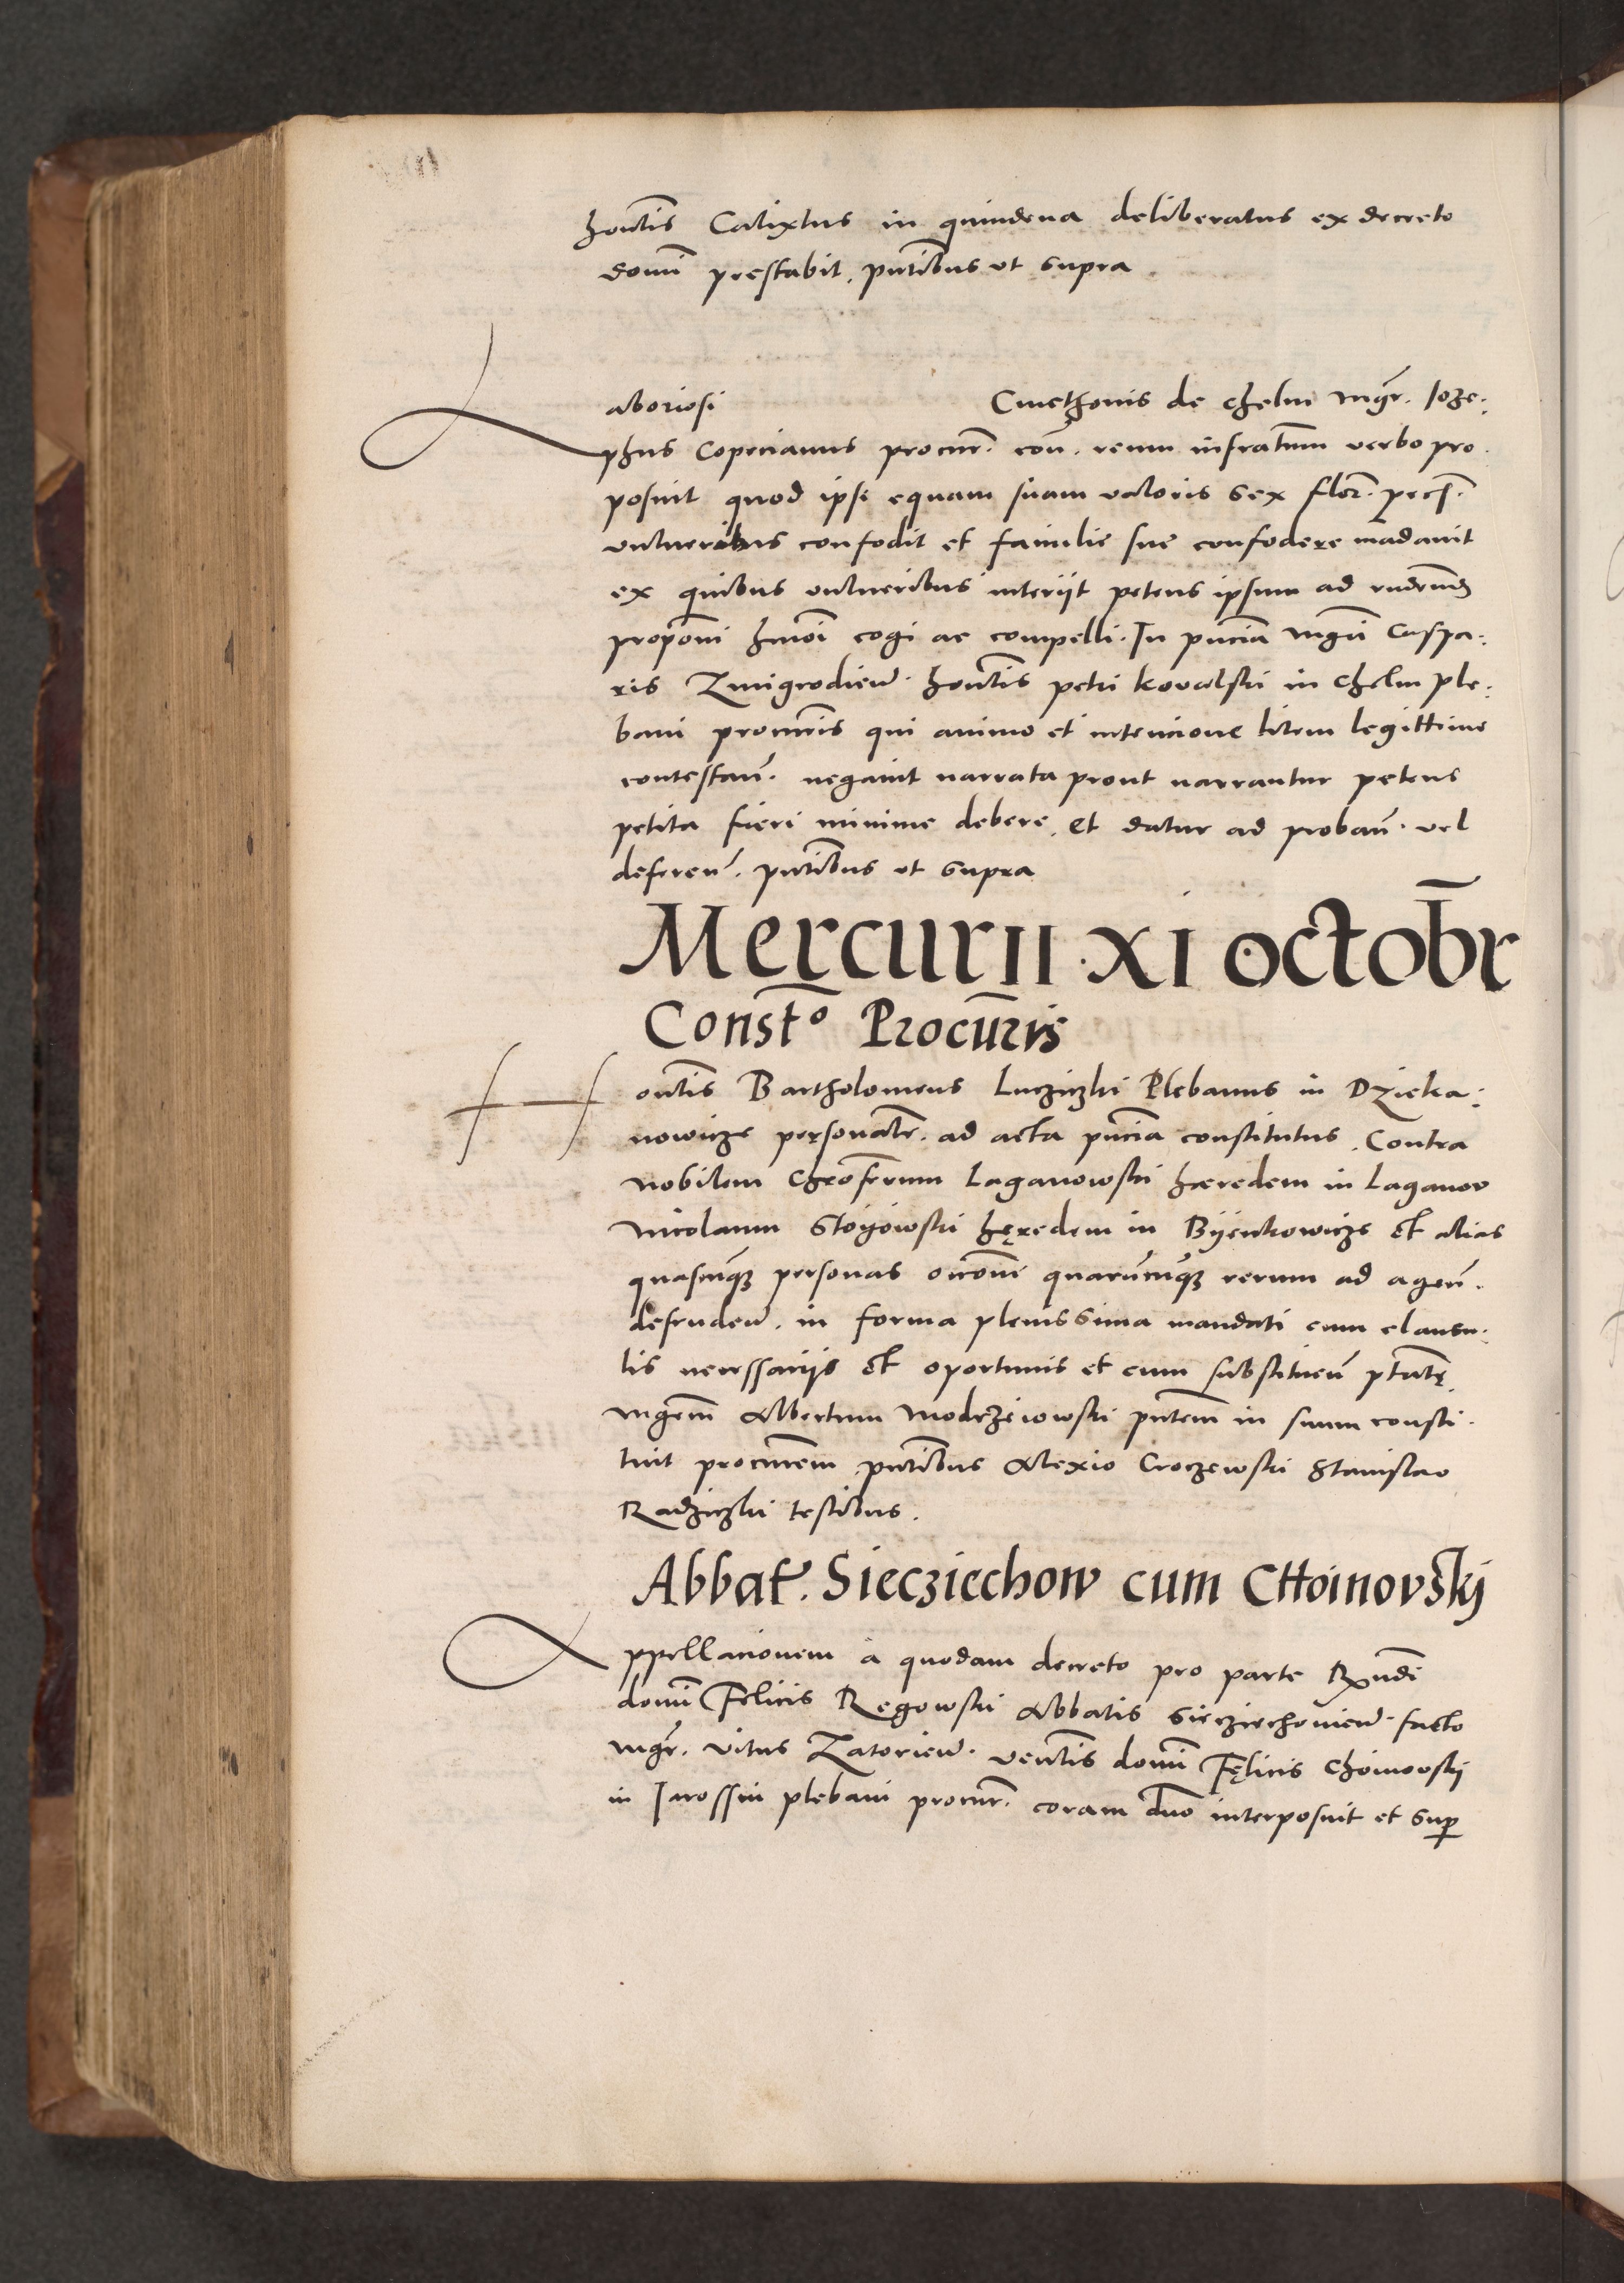 hontis Calixtus in quindena deliberatus ex decreto
domi prestabit. pntibus ut supra
Laboriosi Cmethonis de Chelm mgr. Joze:
phus Copecianus procur. con. reum infratum verbo pro
posuit quod ipsi equam suam valoris sex flor.
vulneribus confodit et familie sue confodere madavit
ex quibus vulneribus interiit petens ipsum ad
proponi hmoi cogi ac compelli. In pncia mgri Caspa:
ris Zmigrodien. hontis petri Kovalski in Chelm ple:
bani procuris qui animo et intencione litem legittime
contestan. negavit narrata prout narrantur petens
petita fieri minime debere. et datur ad proban. vel
deferen. pntibus ut supra
Mercurii XI octobr
Constº Procuris
Hontis Bartholomeus Lucziczki Plebanus in Dzieka:
nowicze personalr. ad acta pncia constitutus. Contra
nobilem Laganowski hæredem in Laganow
Nicolaum Stoyowski hęredem in Byienkowicze et alias
quascunqz personas occone quarumcunqz rerum ad agen.
defenden. in forma plenissima mandati cum clausu:
lis necessariis et oportunis et cum substituen ptatę
mgrem Albertum Modrzeiowski pntem in suum consti
tuit procurem pntibus Alexio Croczewski Stanislao
Radziczki testibus.
Abbat. Siecziechow cum Choinovskj
Appellacionem a quodam decreto pro parte Rxndi
domi Felicis Regowski Abbatis Siecziechovien. facto
mgr. Vitus Zatorien. ventis domi Fęlicis Choinovskj
in Jarossin plebani procur. coram dno interposuit et sup